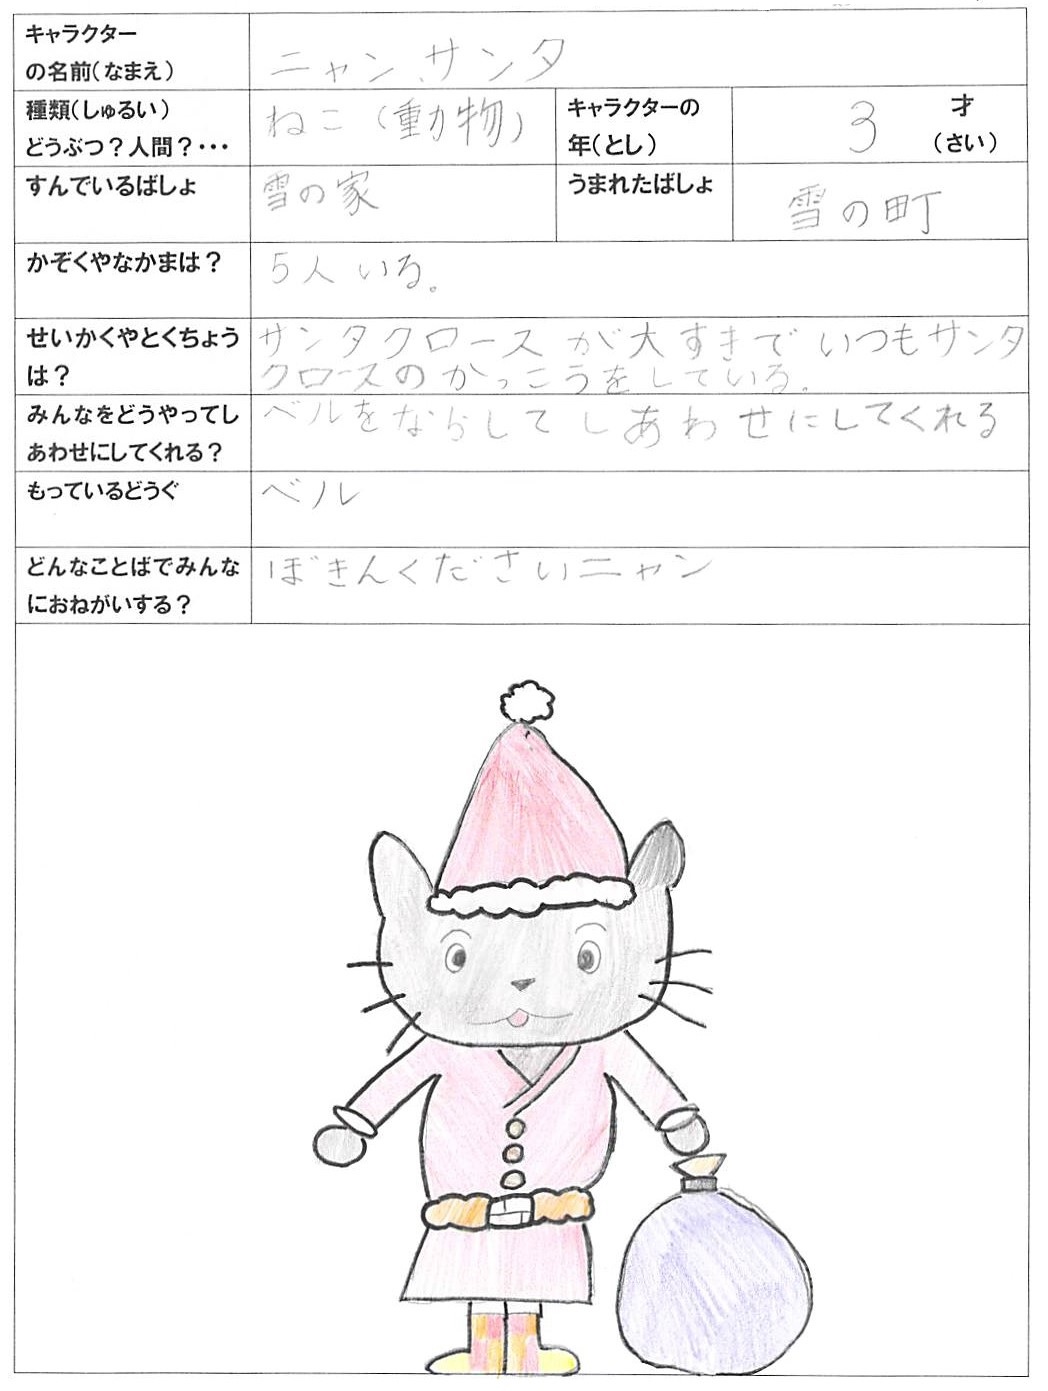 キャラクター
の名前(なまえ)
ニャンサンタ
種類(しゅるい)
どうぶつ?人間?・・・
ねこ(動物)
キャラクターの
年(とし)
3
才
(さい)
すんでいるばしょ
雪の家
うまれたばしょ
雪の町
かぞくやなかまは?
5人いる。
せいかくやとくちょう
は?
サンタクロースが大すきでいつもサンタ
クロースのかっこうをしている。
みんなをどうやってし
あわせにしてくれる?
ベルをならしてしあわせにしてくれる
もっているどうぐ
ベル
どんなことばでみんな
におねがいする?
ぼきんくださいニャン